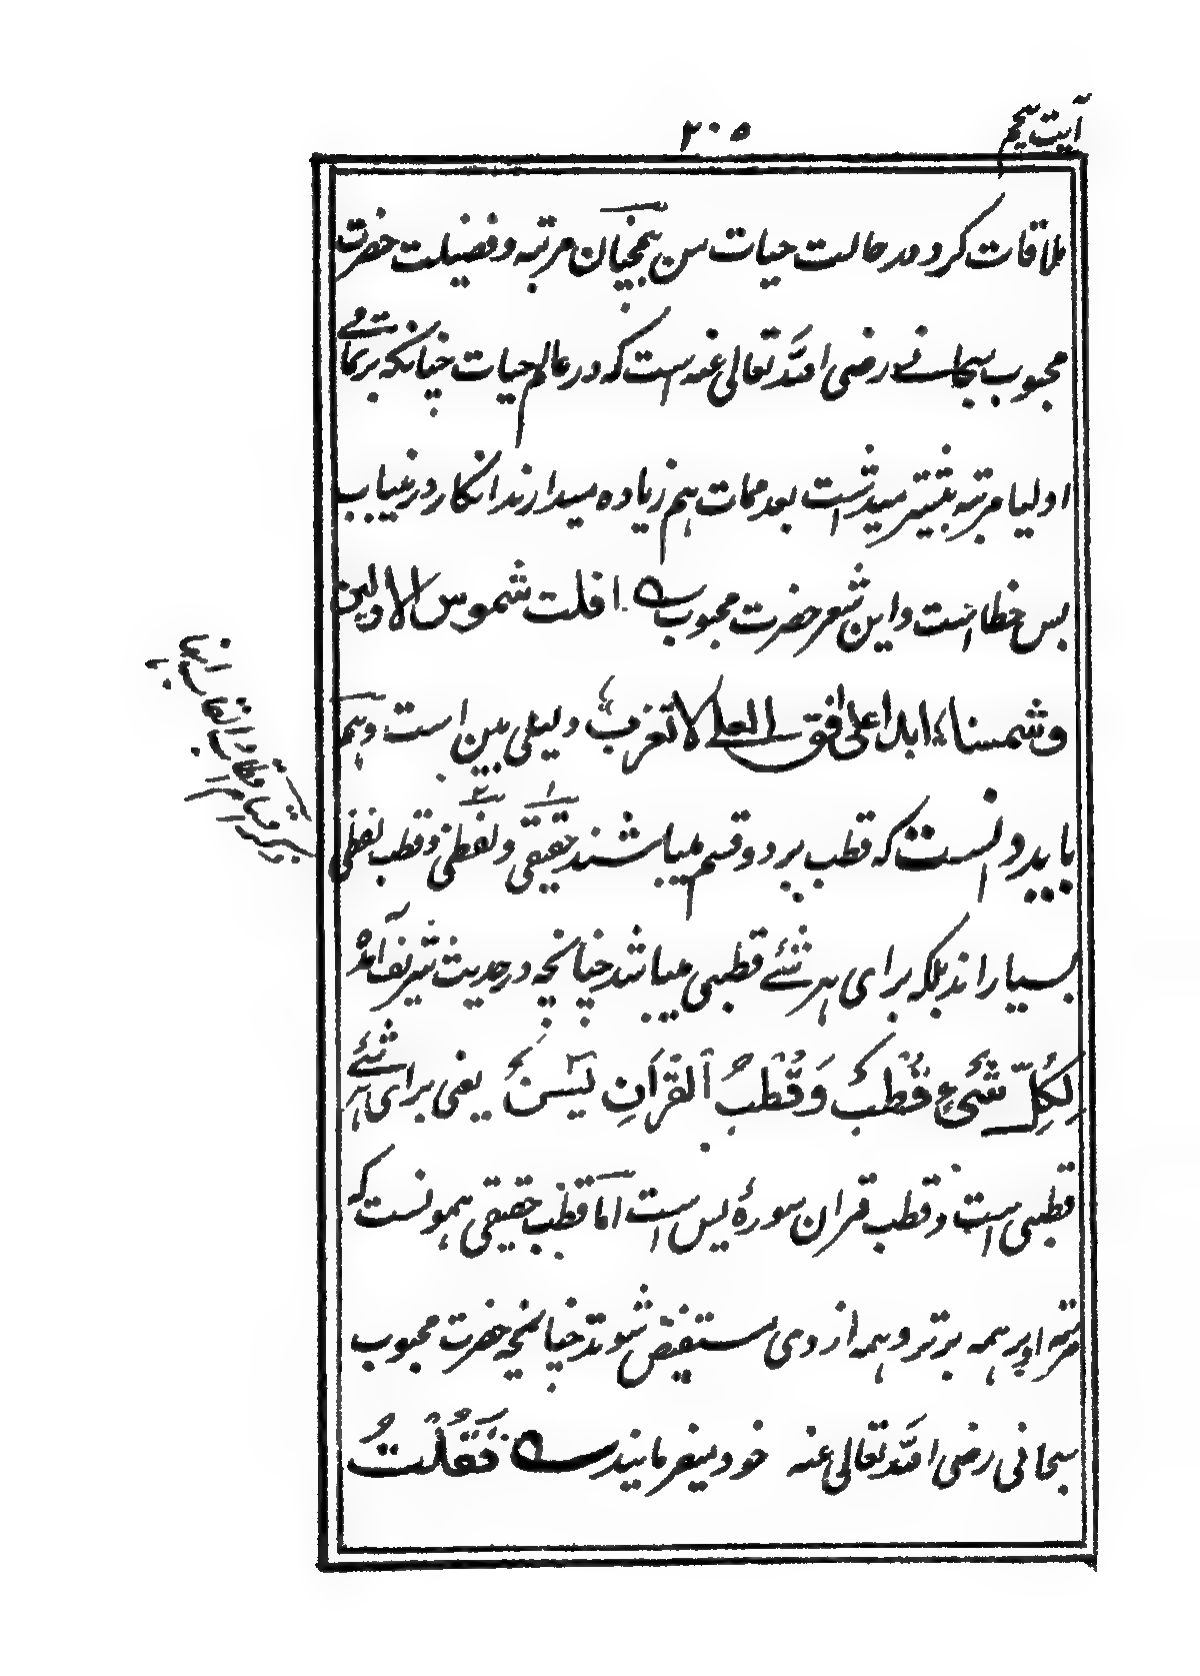 آیت پنجم
۲۰۵
ملاقات کرد در حالت حیات من همچنان مرتبه و فضیلت حضرت
محبوب سبحانے رضی الله تعالی عنه است که در عالم حیات چنانکه بر تمامے
اولیا مرتبه بیشتر میداشت بعد ممات هم زیاده میدارند انکار در نیباب
بس خطا است و این شعر حضرت محبوب افلت شموس الاولین
وشمسنا ابدا علی افق العلے لا تغرب دلیلی مبین است و هم
باید دانست که قطب بر دو قسم میباشند حقیقی و لفظی و قطب لفظی
بسیار اند بلکه برای هر شئے قطبی میباشد چنانچه در حدیث شریف آمده
لِكُلِّ شَیءٍ قُطبٌ وَقُطْبُ اَلقُراٰنِ یٰسٓ یعنی برای هر شئے
قطبی است و قطب قران سورهٔ یس است اما قطب حقیقی همونست که
مرتبه او بر همه برتر و همه از وی مستفیض شوند چنانچه حضرت محبوب
سبحانی رضی الله تعالی عنه خود میفرمایند فَقُلْتُ